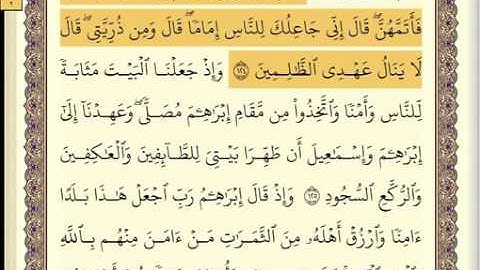 فَأَتَمَّهُنَّ ۖ قَالَ إِنِّي جَاعِلُكَ لِلنَّاسِ إِمَامًا ۖ قَالَ وَمِن ذُرِّيَّتِي ۖ قَالَ
لَا يَنَالُ عَهْدِي الظَّٰلِمِينَ ١٢٤ وَإِذْ جَعَلْنَا الْبَيْتَ مَثَابَةً
لِّلنَّاسِ وَأَمْنًا وَاتَّخِذُوا۟ مِن مَّقَامِ إِبْرَٰهِـۧمَ مُصَلًّى ۖ وَعَهِدْنَآ إِلَىٰٓ
إِبْرَٰهِـۧمَ وَإِسْمَٰعِيلَ أَن طَهِّرَا بَيْتِيَ لِلطَّآئِفِينَ وَالْعَٰكِفِينَ
وَالرُّكَّعِ السُّجُودِ ١٢٥ وَإِذْ قَالَ إِبْرَٰهِـۧمُ رَبِّ اجْعَلْ هَٰذَا بَلَدًا
ءَامِنًا وَارْزُقْ أَهْلَهُۥ مِنَ الثَّمَرَٰتِ مَنْ ءَامَنَ مِنْهُم بِاللَّهِ